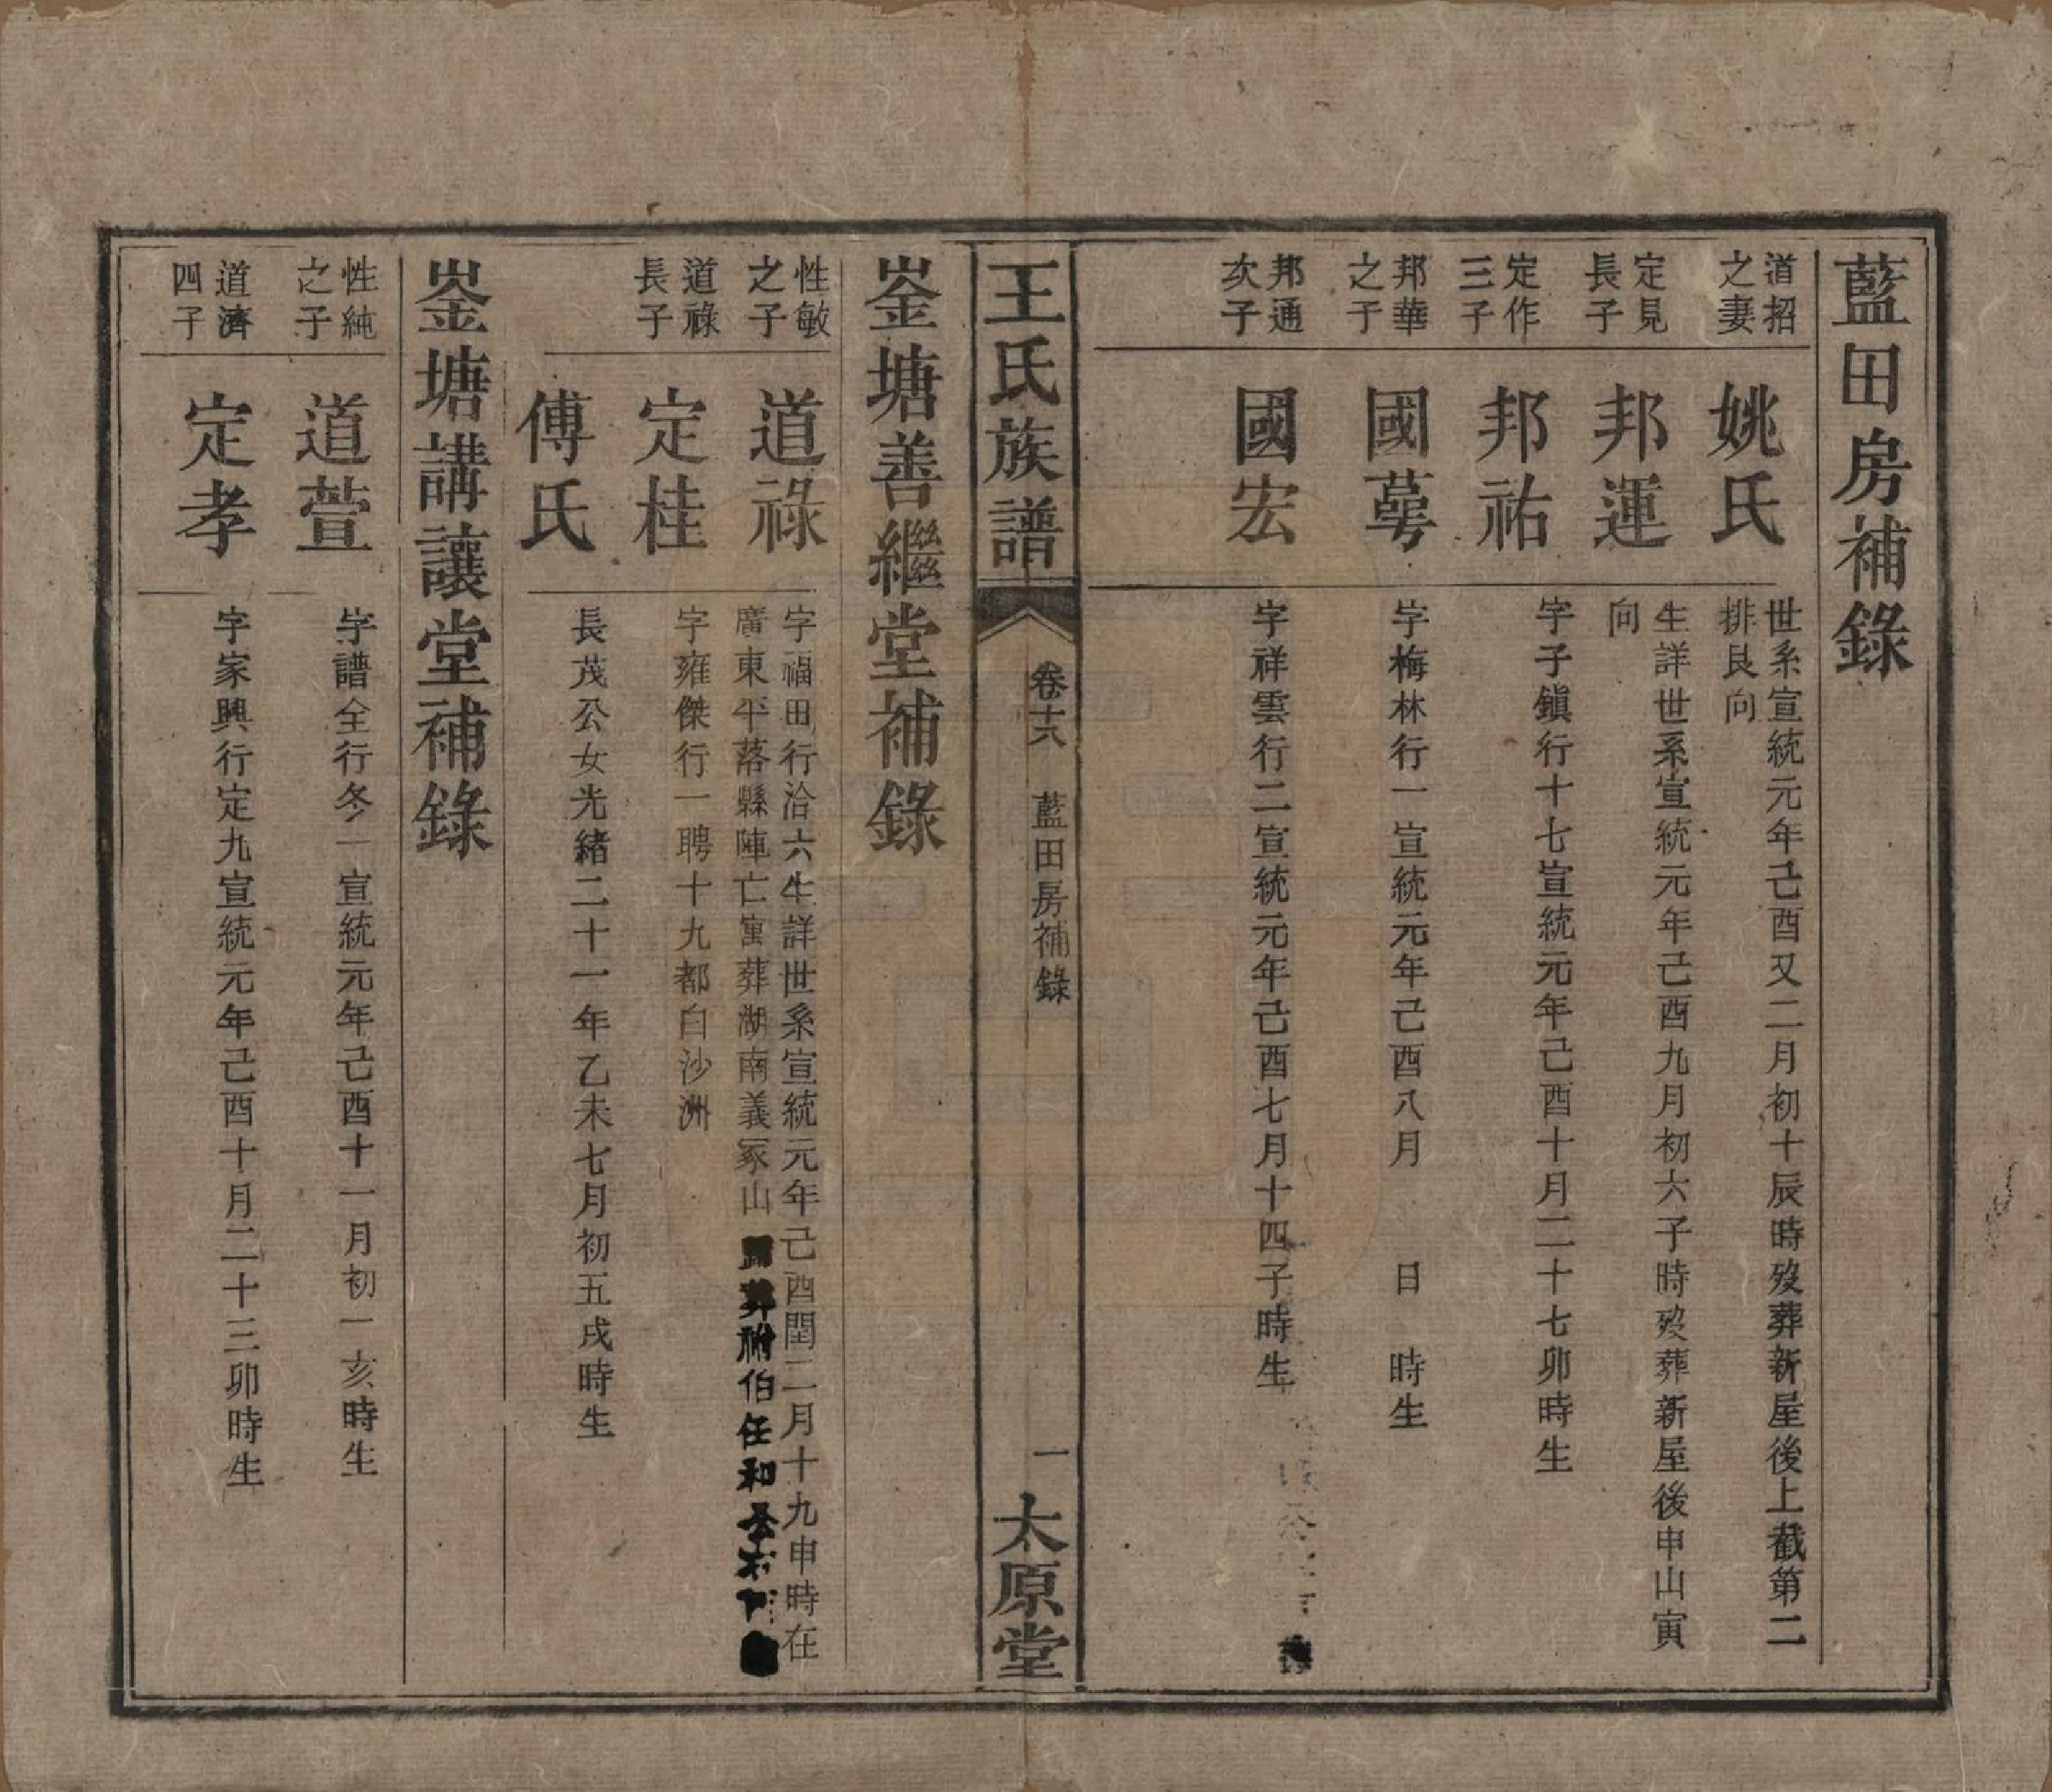 藍田房補錄
道招之妻
姚氏
世系宣統元年己酉又二月初十辰時歿葬新屋後上截第二
排艮向
定見長子
邦運
生詳世系宣統元年己酉九月初六子時歿葬新屋後申山寅
向
定作三子
邦祐
字子鎮行十七宣統元年己酉十月二十七卯時生
邦華之子
國蕚
字梅林行一宣統元年己酉八月　日　時生
邦通次子
國宏
字祥雲行二宣統元年己酉七月十四子時生
王氏族譜
卷十六　藍田房補錄
一
太原堂
崟塘善繼堂補錄
性敏之子
道祿
字福田行洽六生詳世系宣統元年己酉閏二月十九申時在
廣東平落縣陣亡寓葬湖南義冢山歸葬附伯任和公
道祿長子
定桂
字雍傑行一聘十九都白沙洲
傅氏
長茂公女光緒二十一年乙未七月初五戌時生
崟塘講讓堂補錄
性純之子
道萱
字譜全行冬一宣統元年己酉十一月初一亥時生
道濟四子
定孝
字家興行定九宣統元年己酉十月二十三卯時生